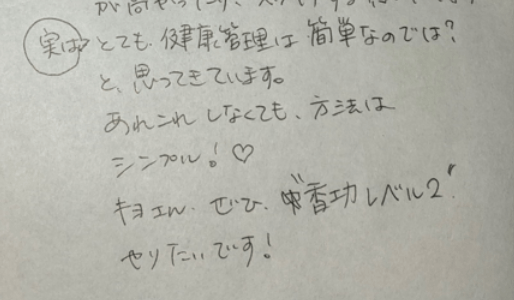 実は とても 健康管理は 簡単なのでは?
と、思ってきています。
あれこれ しなくても、方法は
シンプル!♡
ぜひ、"香功レベル2"
やりたいです!